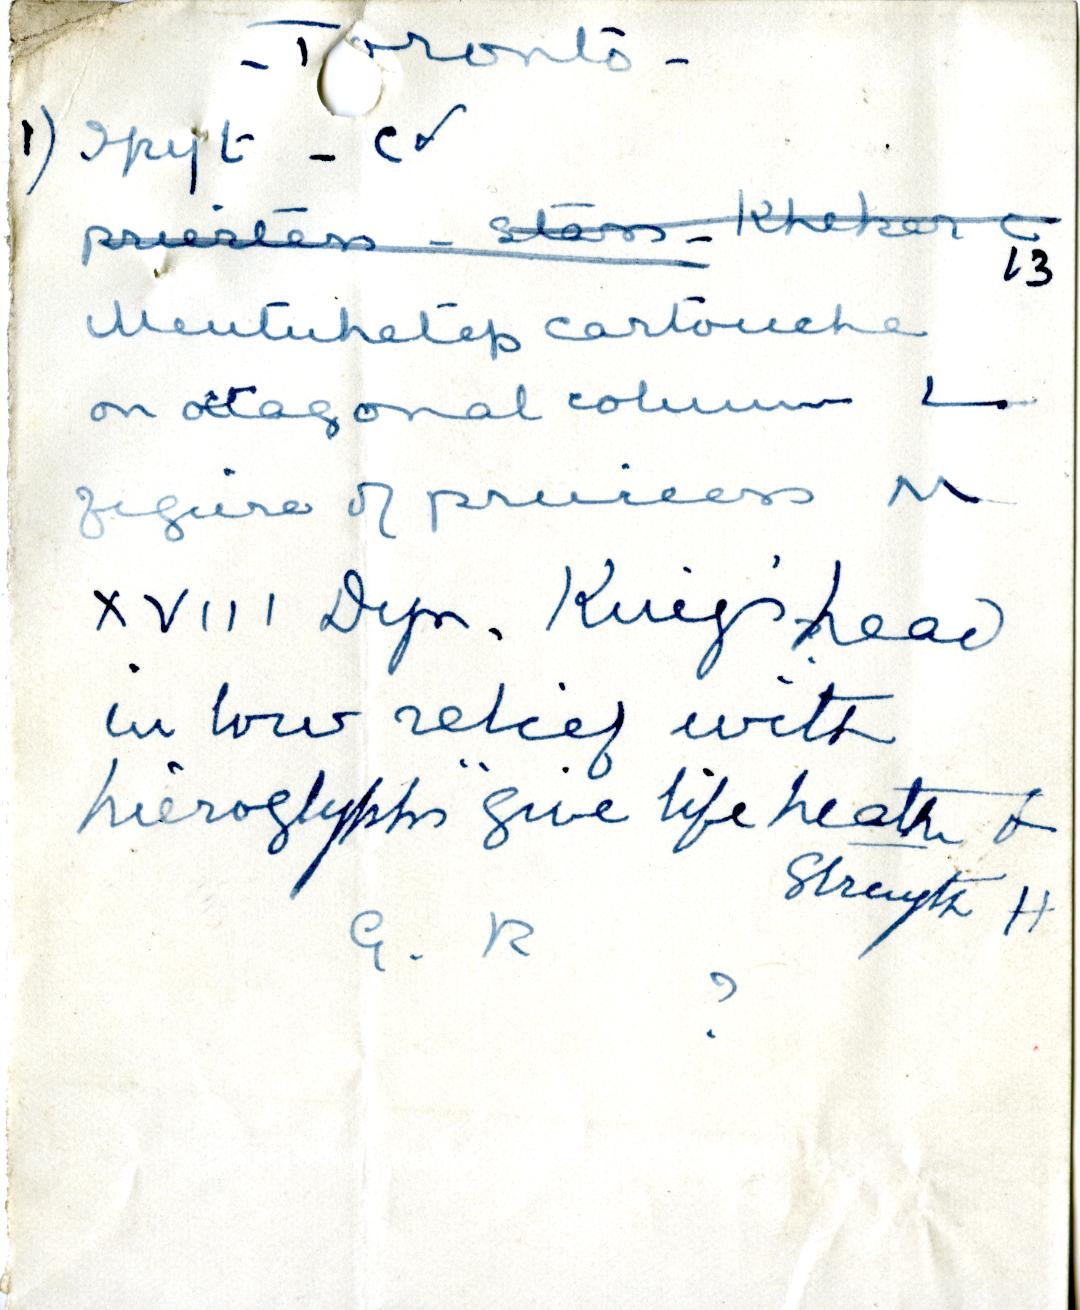 - Toronto -
1) Ipuyt - C ✓
priestess - stars - Khekar C
13
Mentuhetep cartouche
on octagonal column L
figure of princess M
XVIII Dyn. King's head
in low relief with
hieroglyphs "give life heath &
Strength H
G. R
?